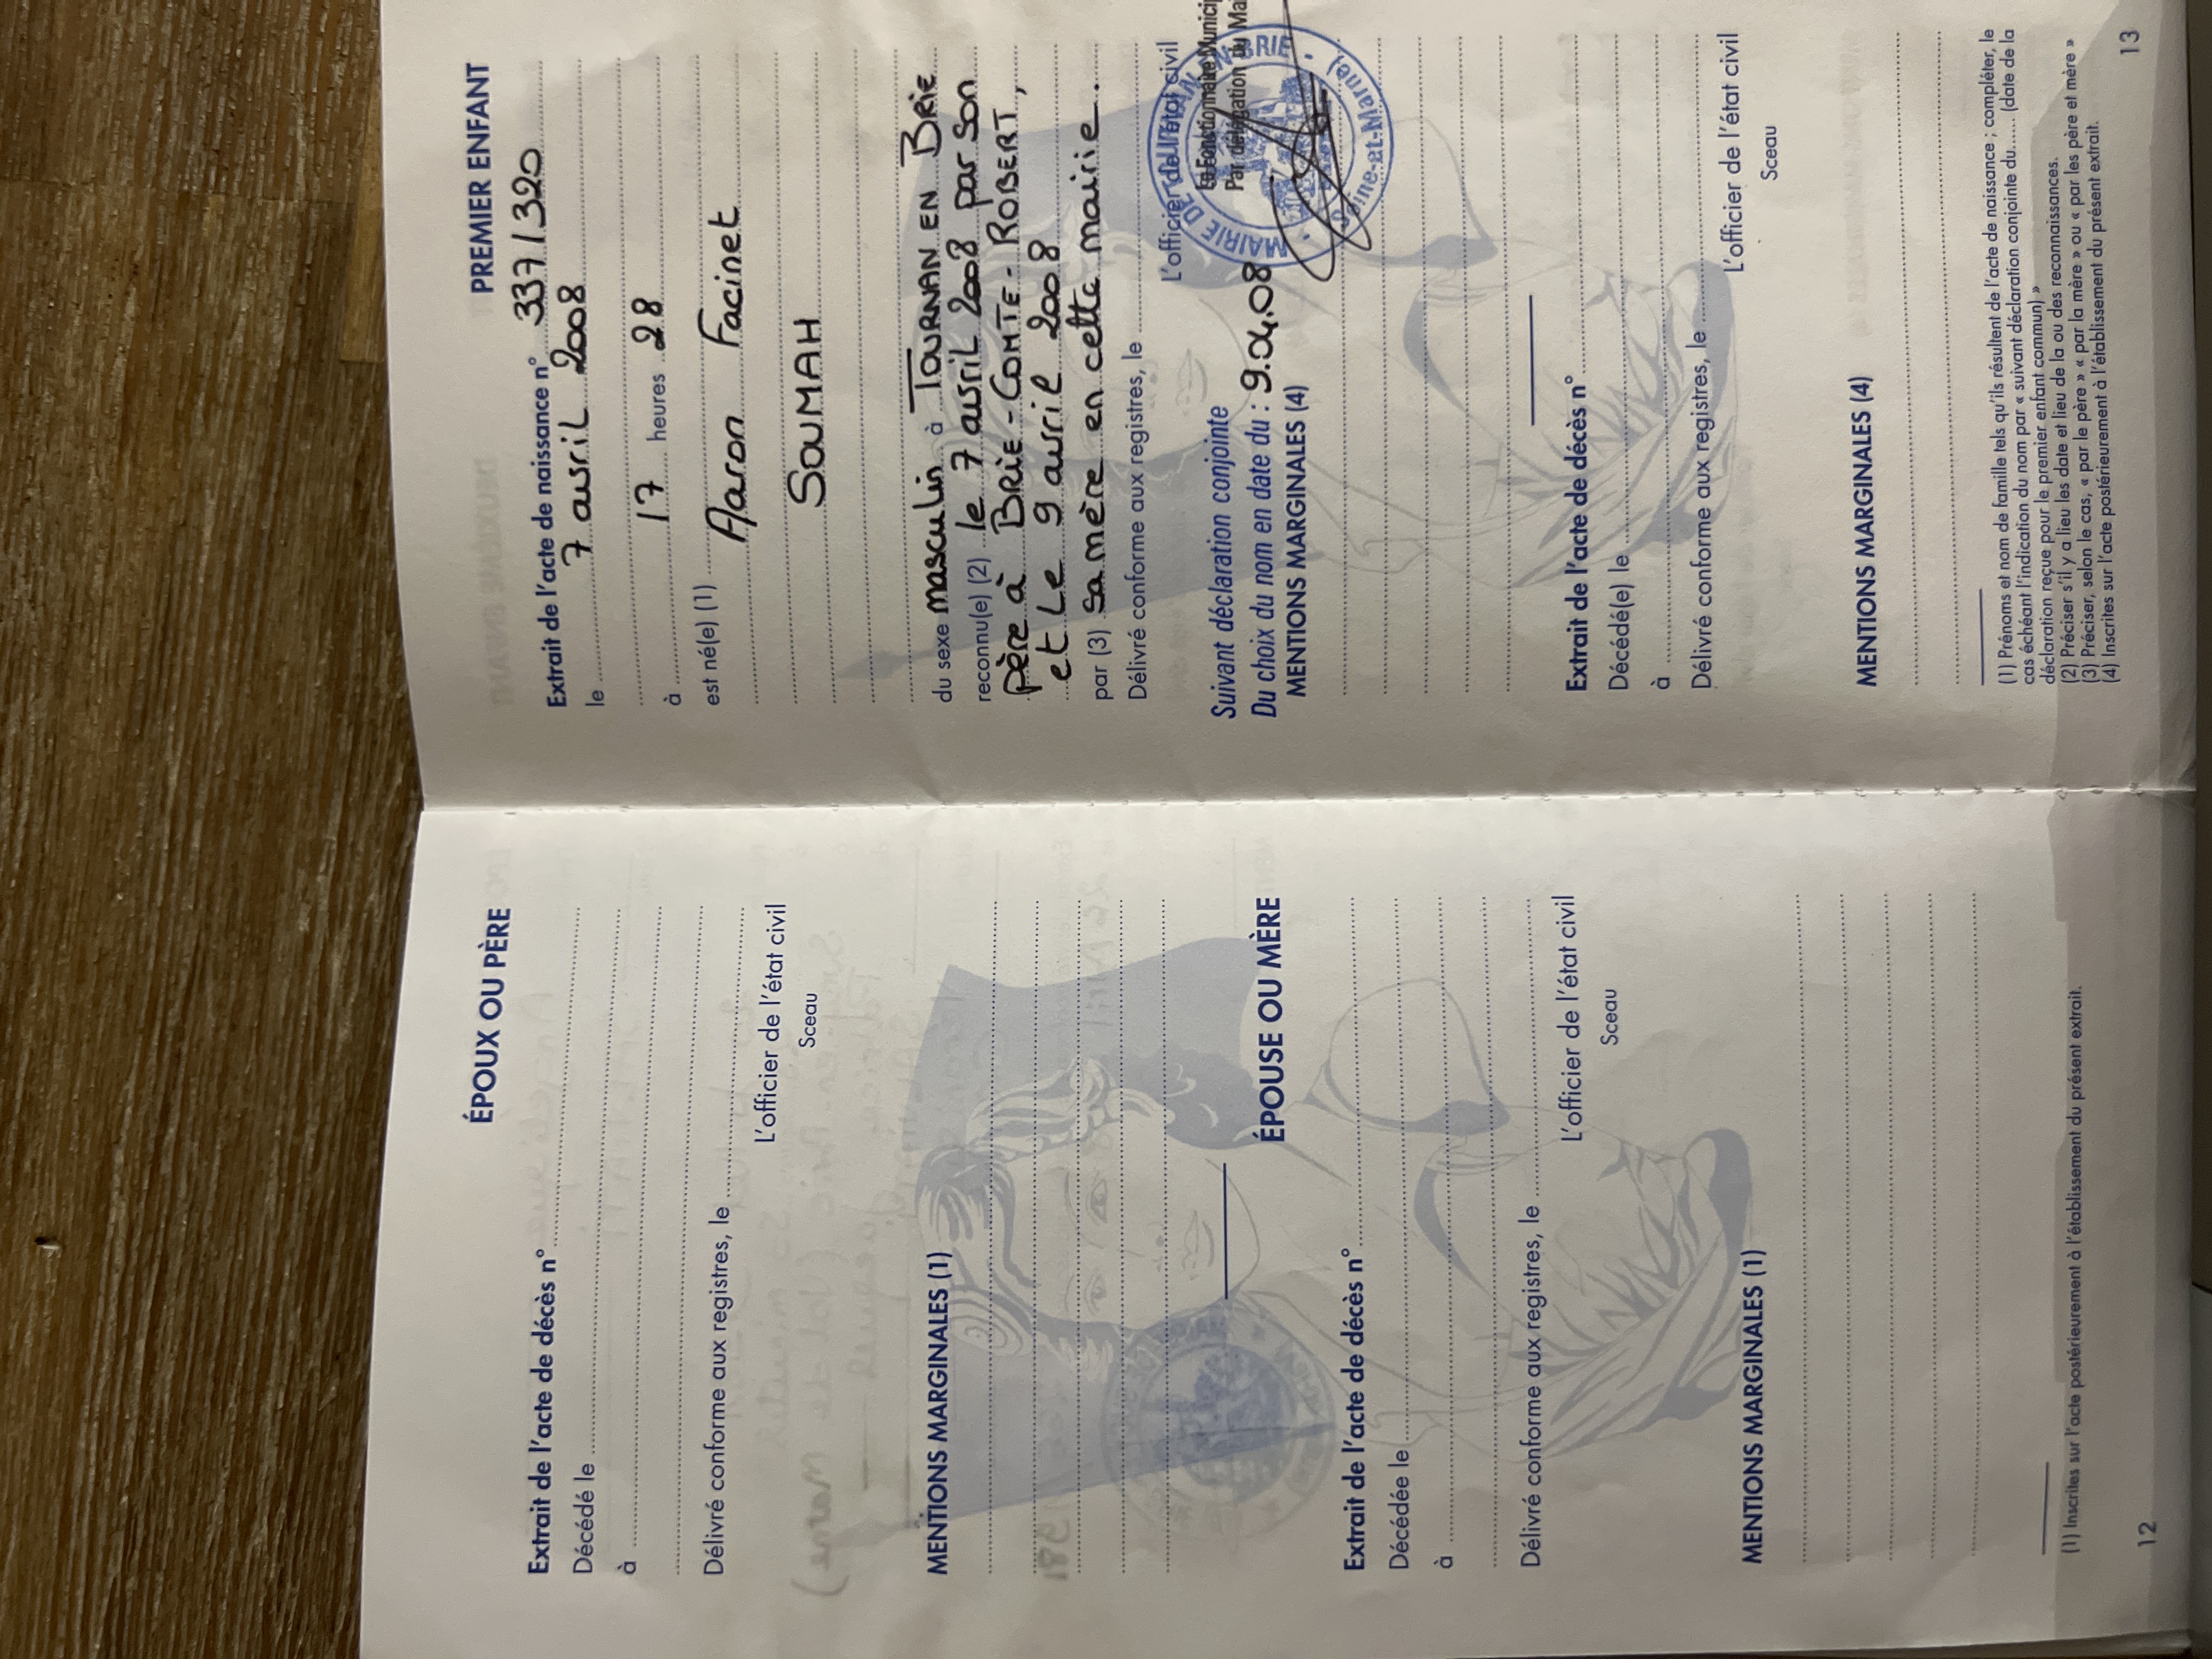 ÉPOUX OU PÈRE
Extrait de l'acte de décès n°
Décédé le
à
Délivré conforme aux registres, le
L'officier de l'état civil
Sceau
MENTIONS MARGINALES (1)
ÉPOUSE OU MÈRE
Extrait de l'acte de décès n°
Décédée le
à
Délivré conforme aux registres, le
L'officier de l'état civil
Sceau
MENTIONS MARGINALES (1)
(1) Inscrites sur l'acte postérieurement à l'établissement du présent extrait.
12
PREMIER ENFANT
Extrait de l'acte de naissance n° 337/320
le 7 avril 2008
à 17 heures 28
est né(e) (1) Aaron Facinet
SOUMAH
du sexe masculin à TOURNAN EN BRIE
reconnu(e) (2) le 7 avril 2008 par son
père à BRIE-COMTE-ROBERT,
et Le 9 avril 2008
par (3) sa mère en cette mairie.
Délivré conforme aux registres, le
L'officier de l'état civil
Le Fonctionnaire Munici
Par délégation du Mai
MAIRIE DE TOURNAN EN BRIE
(Seine-et-Marne)
Suivant déclaration conjointe
Du choix du nom en date du : 9.04.08
MENTIONS MARGINALES (4)
Extrait de l'acte de décès n°
Décédé(e) le
à
Délivré conforme aux registres, le
L'officier de l'état civil
Sceau
MENTIONS MARGINALES (4)
(1) Prénoms et nom de famille tels qu'ils résultent de l'acte de naissance ; compléter, le
cas échéant l'indication du nom par « suivant déclaration conjointe du...... (date de la
déclaration reçue pour le premier enfant commun) »
(2) Préciser s'il y a lieu les date et lieu de la ou des reconnaissances.
(3) Préciser, selon le cas, « par le père » « par la mère » ou « par les père et mère »
(4) Inscrites sur l'acte postérieurement à l'établissement du présent extrait.
13